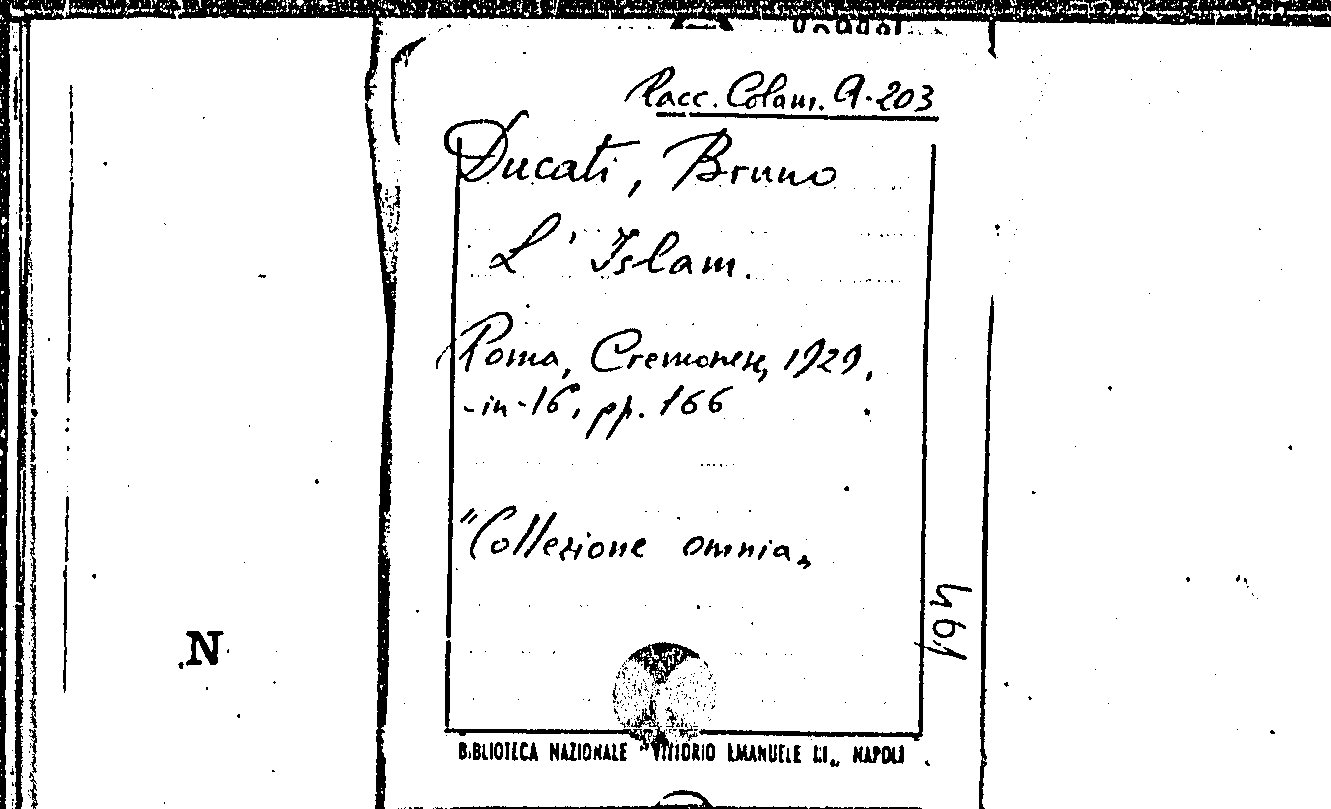 Racc. Colam. A-203
Ducati, Bruno
L'Islam.
Roma, Cremonese, 1929,
in-16, pp. 166
"Collezione omnia„
461
N
BIBLIOTECA NAZIONALE "VITTORIO EMANUELE III„ NAPOLI